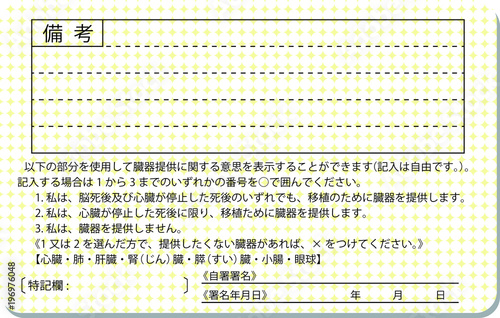 備 考
以下の部分を使用して臓器提供に関する意思を表示することができます（記入は自由です。）。
記入する場合は 1 から 3 までのいずれかの番号を○で囲んでください。
1. 私は、脳死後及び心臓が停止した死後のいずれでも、移植のために臓器を提供します。
2. 私は、心臓が停止した死後に限り、移植ために臓器を提供します。
3. 私は、臓器を提供しません。
《1 又は 2 を選んだ方で、提供したくない臓器があれば、× をつけてください。》
【心臓・肺・肝臓・腎（じん）臓・膵（すい）臓・小腸・眼球】
〔特記欄： 〕
《自署署名》
《署名年月日》 年 月 日
#196976048